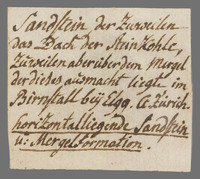 Sandstein der Zuweilen
das Dach der Steinkohle,
Zuweilen aber über dem Mergel
der dieses ausmacht liegt im
Birrnstall beÿ Elgg. Ct Zürich
horizontalliegende Sandstein
u: Mergelformation.